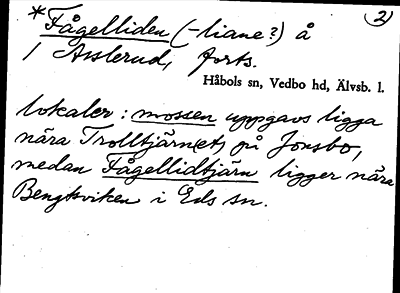 *Fågelliden (-liane?) å (2)
/ Asslerud, forts.
Håbols sn, Vedbo hd, Älvsb. l.
lokaler: mossen uppgavs ligga
nära Trolltjärn(et) på Jonsbo,
medan Fågellidtjärn ligger nära
Bengtsviken i Eds sn.